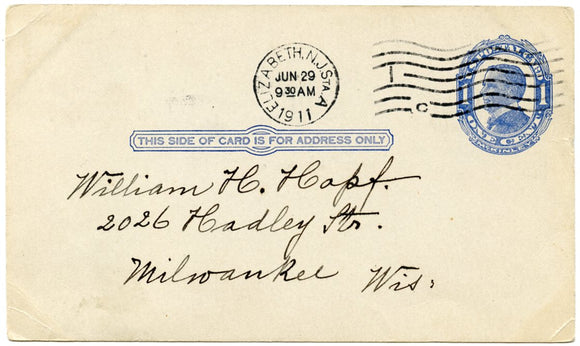 ELIZABETH, N.J. STA. A
JUN 29
9 30 AM
1911
C
POSTAL CARD
1 1
ONE CENT
MCKINLEY
THIS SIDE OF CARD IS FOR ADDRESS ONLY
William H. Hopf.
2026 Hadley Str.
Milwaukee Wis: